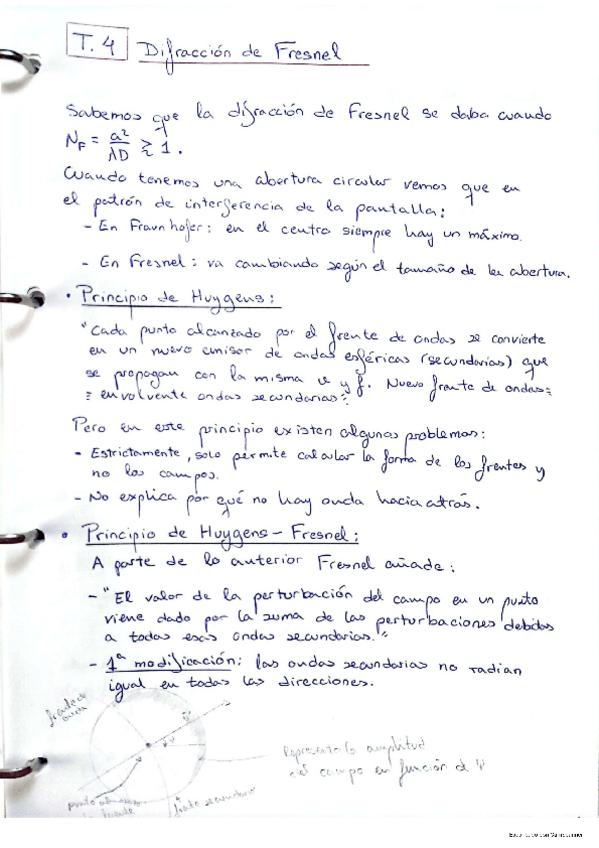 T.4 Difracción de Fresnel
Sabemos que la difracción de Fresnel se daba cuando
N_F = a²/λD ≳ 1.
Cuando tenemos una abertura circular vemos que en
el patrón de interferencia de la pantalla:
- En Fraunhofer: en el centro siempre hay un máximo.
- En Fresnel: va cambiando según el tamaño de la abertura.
• Principio de Huygens:
"Cada punto alcanzado por el frente de ondas se convierte
en un nuevo emisor de ondas esféricas (secundarias) que
se propagan con la misma v y f. Nuevo frente de ondas =
= envolvente ondas secundarias".
Pero en este principio existen algunos problemas:
- Estrictamente, solo permite calcular la forma de los frentes y
no los campos.
- No explica por qué no hay onda hacia atrás.
• Principio de Huygens - Fresnel:
A parte de lo anterior Fresnel añade:
- "El valor de la perturbación del campo en un punto
viene dado por la suma de las perturbaciones debidas
a todas esas ondas secundarias."
- 1ª modificación: las ondas secundarias no radian
igual en todas las direcciones.
frente de
onda
Representa la amplitud
del campo en función de ψ
punto
frente secundario
frente